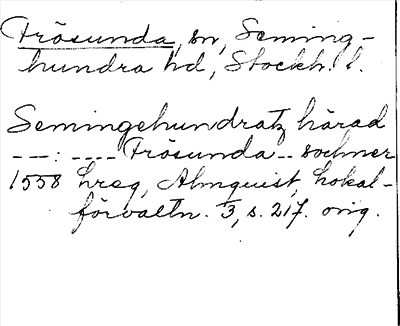 Frösunda, sn, Seming-
hundra hd, Stockh. l.
Semingehundratz härad
---: ---- Frösunda -- sochner
1558 hreg, Almquist, Lokal-
förvaltn. 3, s. 217. orig.